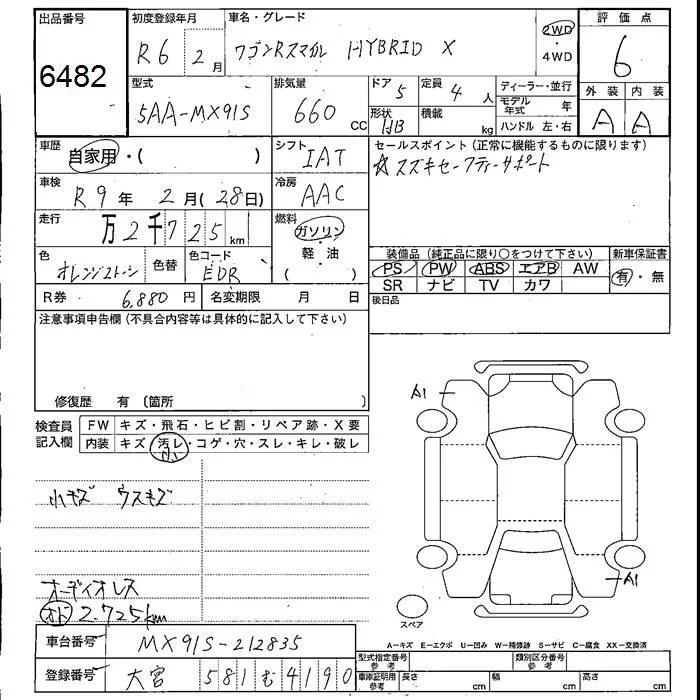 出品番号
6482
初度登録年月
R6 年 2月
車名・グレード
ワゴンRスマイル HYBRID X
2WD
・
4WD
評価点
6
型式
5AA-MX91S
排気量
660 CC
ドア 5
定員 4 人
形状 HB
積載 kg
ディーラー・並行
モデル年式 年
ハンドル 左・右
外装 内装
A A
車歴
自家用・( )
シフト
IAT
セールスポイント(正常に機能するものに限ります)
☆スズキセーフティーサポート
車検
R9年 2月(28日)
冷房
AAC
走行
万2千725km
燃料
ガソリン
・
軽・油
( )
色
オレンジ2トーン
色替
色コード
EDR
装備品(純正品に限り○をつけて下さい)
PS PW ABS エアB AW
SR ナビ TV カワ
新車保証書
有・無
R券 6,880円
名変期限 月 日
後日品
注意事項申告欄(不具合内容等は具体的に記入して下さい)
修復歴 有〔箇所
検査員
記入欄
FW キズ・飛石・ヒビ割・リペア跡・X要
内装 キズ・汚レ・コゲ・穴・スレ・キレ・破レ
小
小キズ ウスキズ
オーディオレス
オド 2.725km
A1
A1
スペア
A=キズ E=エクボ U=凹み W=補修跡 S=サビ C=腐食 XX=交換済
車台番号 MX91S-212835
登録番号 大宮 581 む 4190
型式指定番号
参考
類別区分番号
参考
車庫証明用
参考
長さ cm
幅 cm
高さ cm